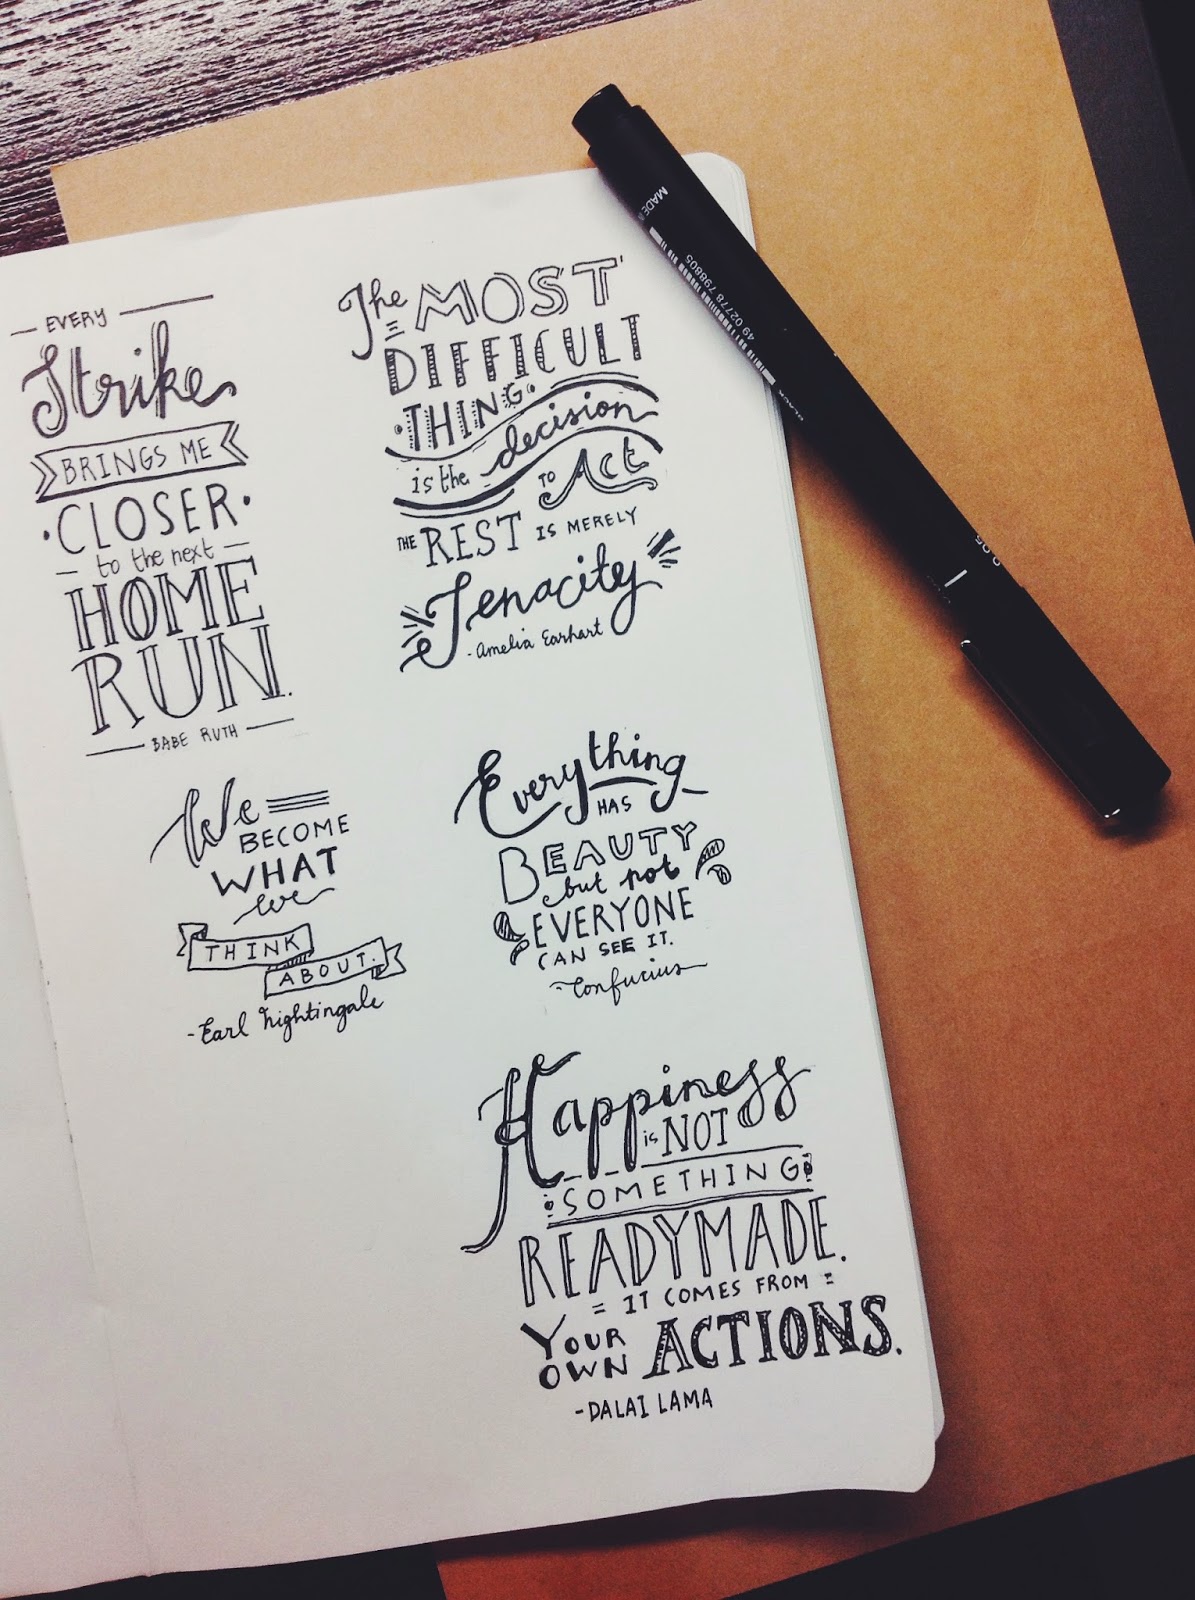 EVERY
Strike
BRINGS ME
CLOSER
to the next
HOME
RUN.
BABE RUTH
The MOST
DIFFICULT
THING
is the decision
TO Act
THE REST IS MERELY
Tenacity
- Amelia Earhart
We
BECOME
WHAT
we
THINK
ABOUT.
- Earl Nightingale
Everything
HAS
BEAUTY
but not
EVERYONE
CAN SEE IT.
- Confucius
Happiness
is NOT
SOMETHING
READYMADE.
= IT COMES FROM =
YOUR
OWN ACTIONS.
- DALAI LAMA
MADE IN
49 02778 798805
BLACK
0.05